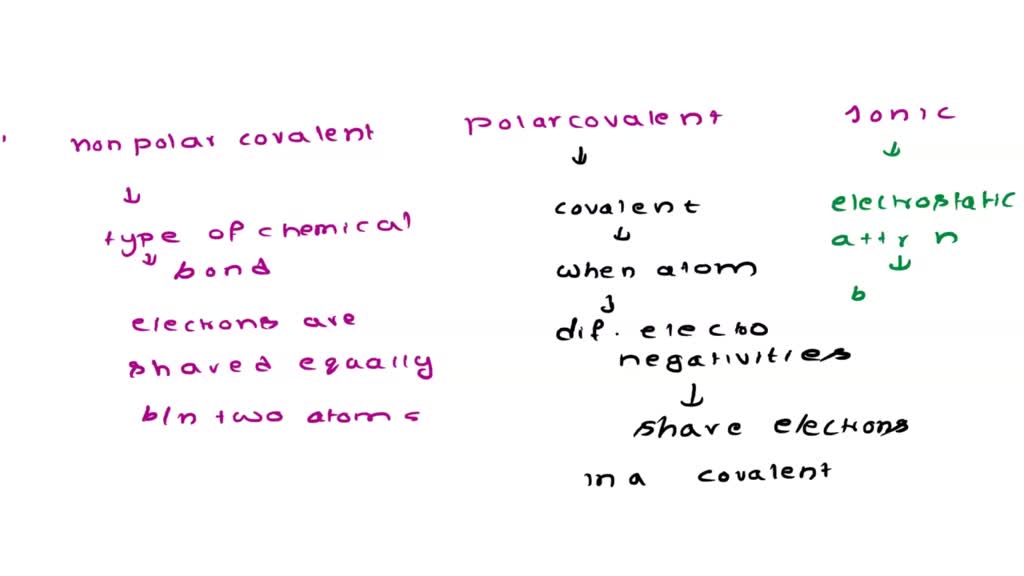 nonpolar covalent
type of chemical
bond
electrons are
shared equally
b/n two atoms
polarcovalent
covalent
when atom
dif. electro
negativities
share electrons
in a covalent
Ionic
electrostatic
attr n
b